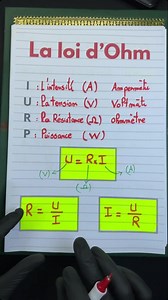 La loi d'Ohm
I : L'intensité (A) Ampermètre
U : La tension (V) Voltmètre
R : La Résistance (Ω) ohmmètre
P : Puissance (W)
U = R x I
(V) (Ω) (A)
R = U / I
I = U / R